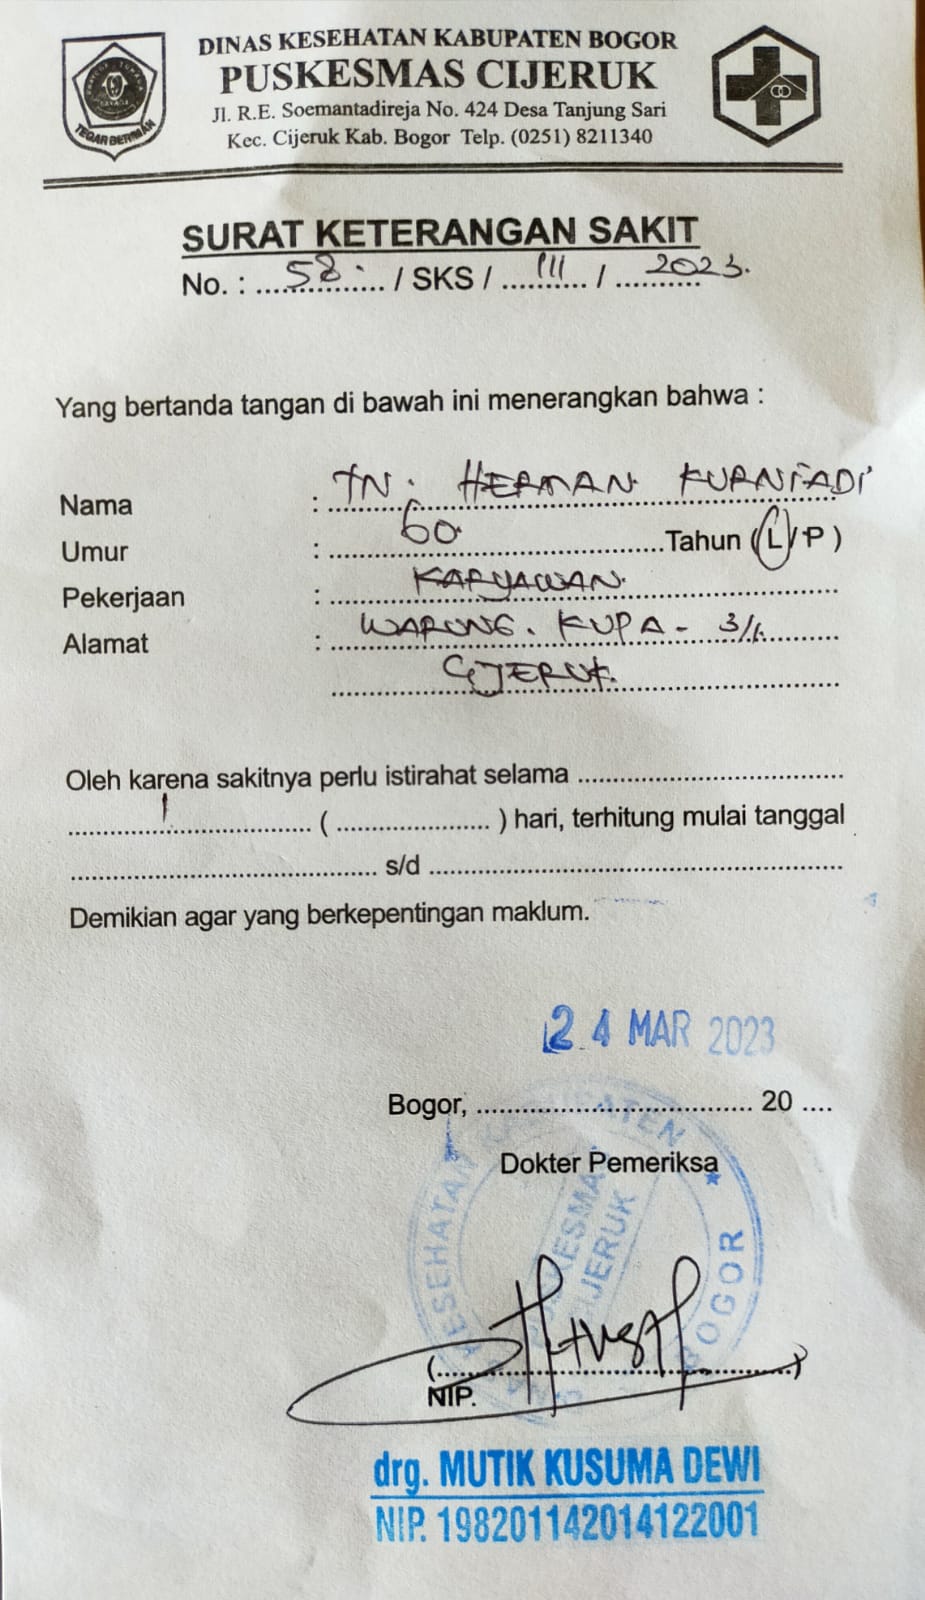 DINAS KESEHATAN KABUPATEN BOGOR
PUSKESMAS CIJERUK
Jl. R.E. Soemantadireja No. 424 Desa Tanjung Sari
Kec. Cijeruk Kab. Bogor Telp. (0251) 8211340
TEGAR BERIMAN
SURAT KETERANGAN SAKIT
No. : 58. / SKS / III / 2023.
Yang bertanda tangan di bawah ini menerangkan bahwa :
Nama : TN. HERMAN KURNIADI
Umur : 60 Tahun (L / P )
Pekerjaan : KARYAWAN.
Alamat : WARUNG. KUPA - 3/1.
CIJERUK.
Oleh karena sakitnya perlu istirahat selama ...................................
................................. ( ..................... ) hari, terhitung mulai tanggal
.......................................... s/d .........................................................
Demikian agar yang berkepentingan maklum.
24 MAR 2023
Bogor, ..................................... 20 ....
Dokter Pemeriksa
KESEHATAN KABUPATEN BOGOR
PUSKESMAS
CIJERUK
(................................................)
NIP.
drg. MUTIK KUSUMA DEWI
NIP. 198201142014122001